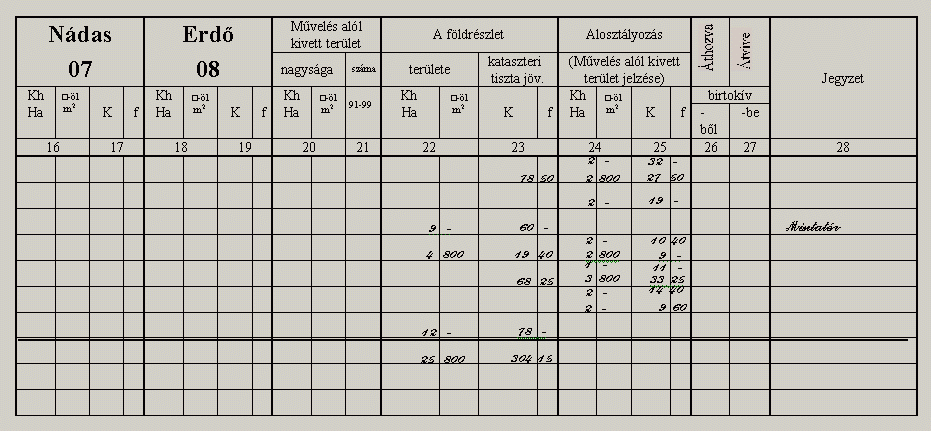 Nádas 07 Erdő 08 Művelés alól kivett terület A földrészlet Alosztályozás Áthozva Átvive Jegyzet
nagysága száma területe kataszteri tiszta jöv. (Művelés alól kivett terület jelzése) birtokív
Kh Ha □-öl m² K f Kh Ha □-öl m² K f Kh Ha □-öl m² 91-99 Kh Ha □-öl m² K f Kh Ha □-öl m² K f -ből -be
16 17 18 19 20 21 22 23 24 25 26 27 28
2 - 32 -
78 50 2 800 27 50
2 - 19 -
9 - 60 - Mintatér
2 - 10 40
4 800 19 40 2 800 9 -
1 - 11 -
68 25 3 800 33 25
2 - 14 40
2 - 9 60
12 - 78 -
25 800 304 15